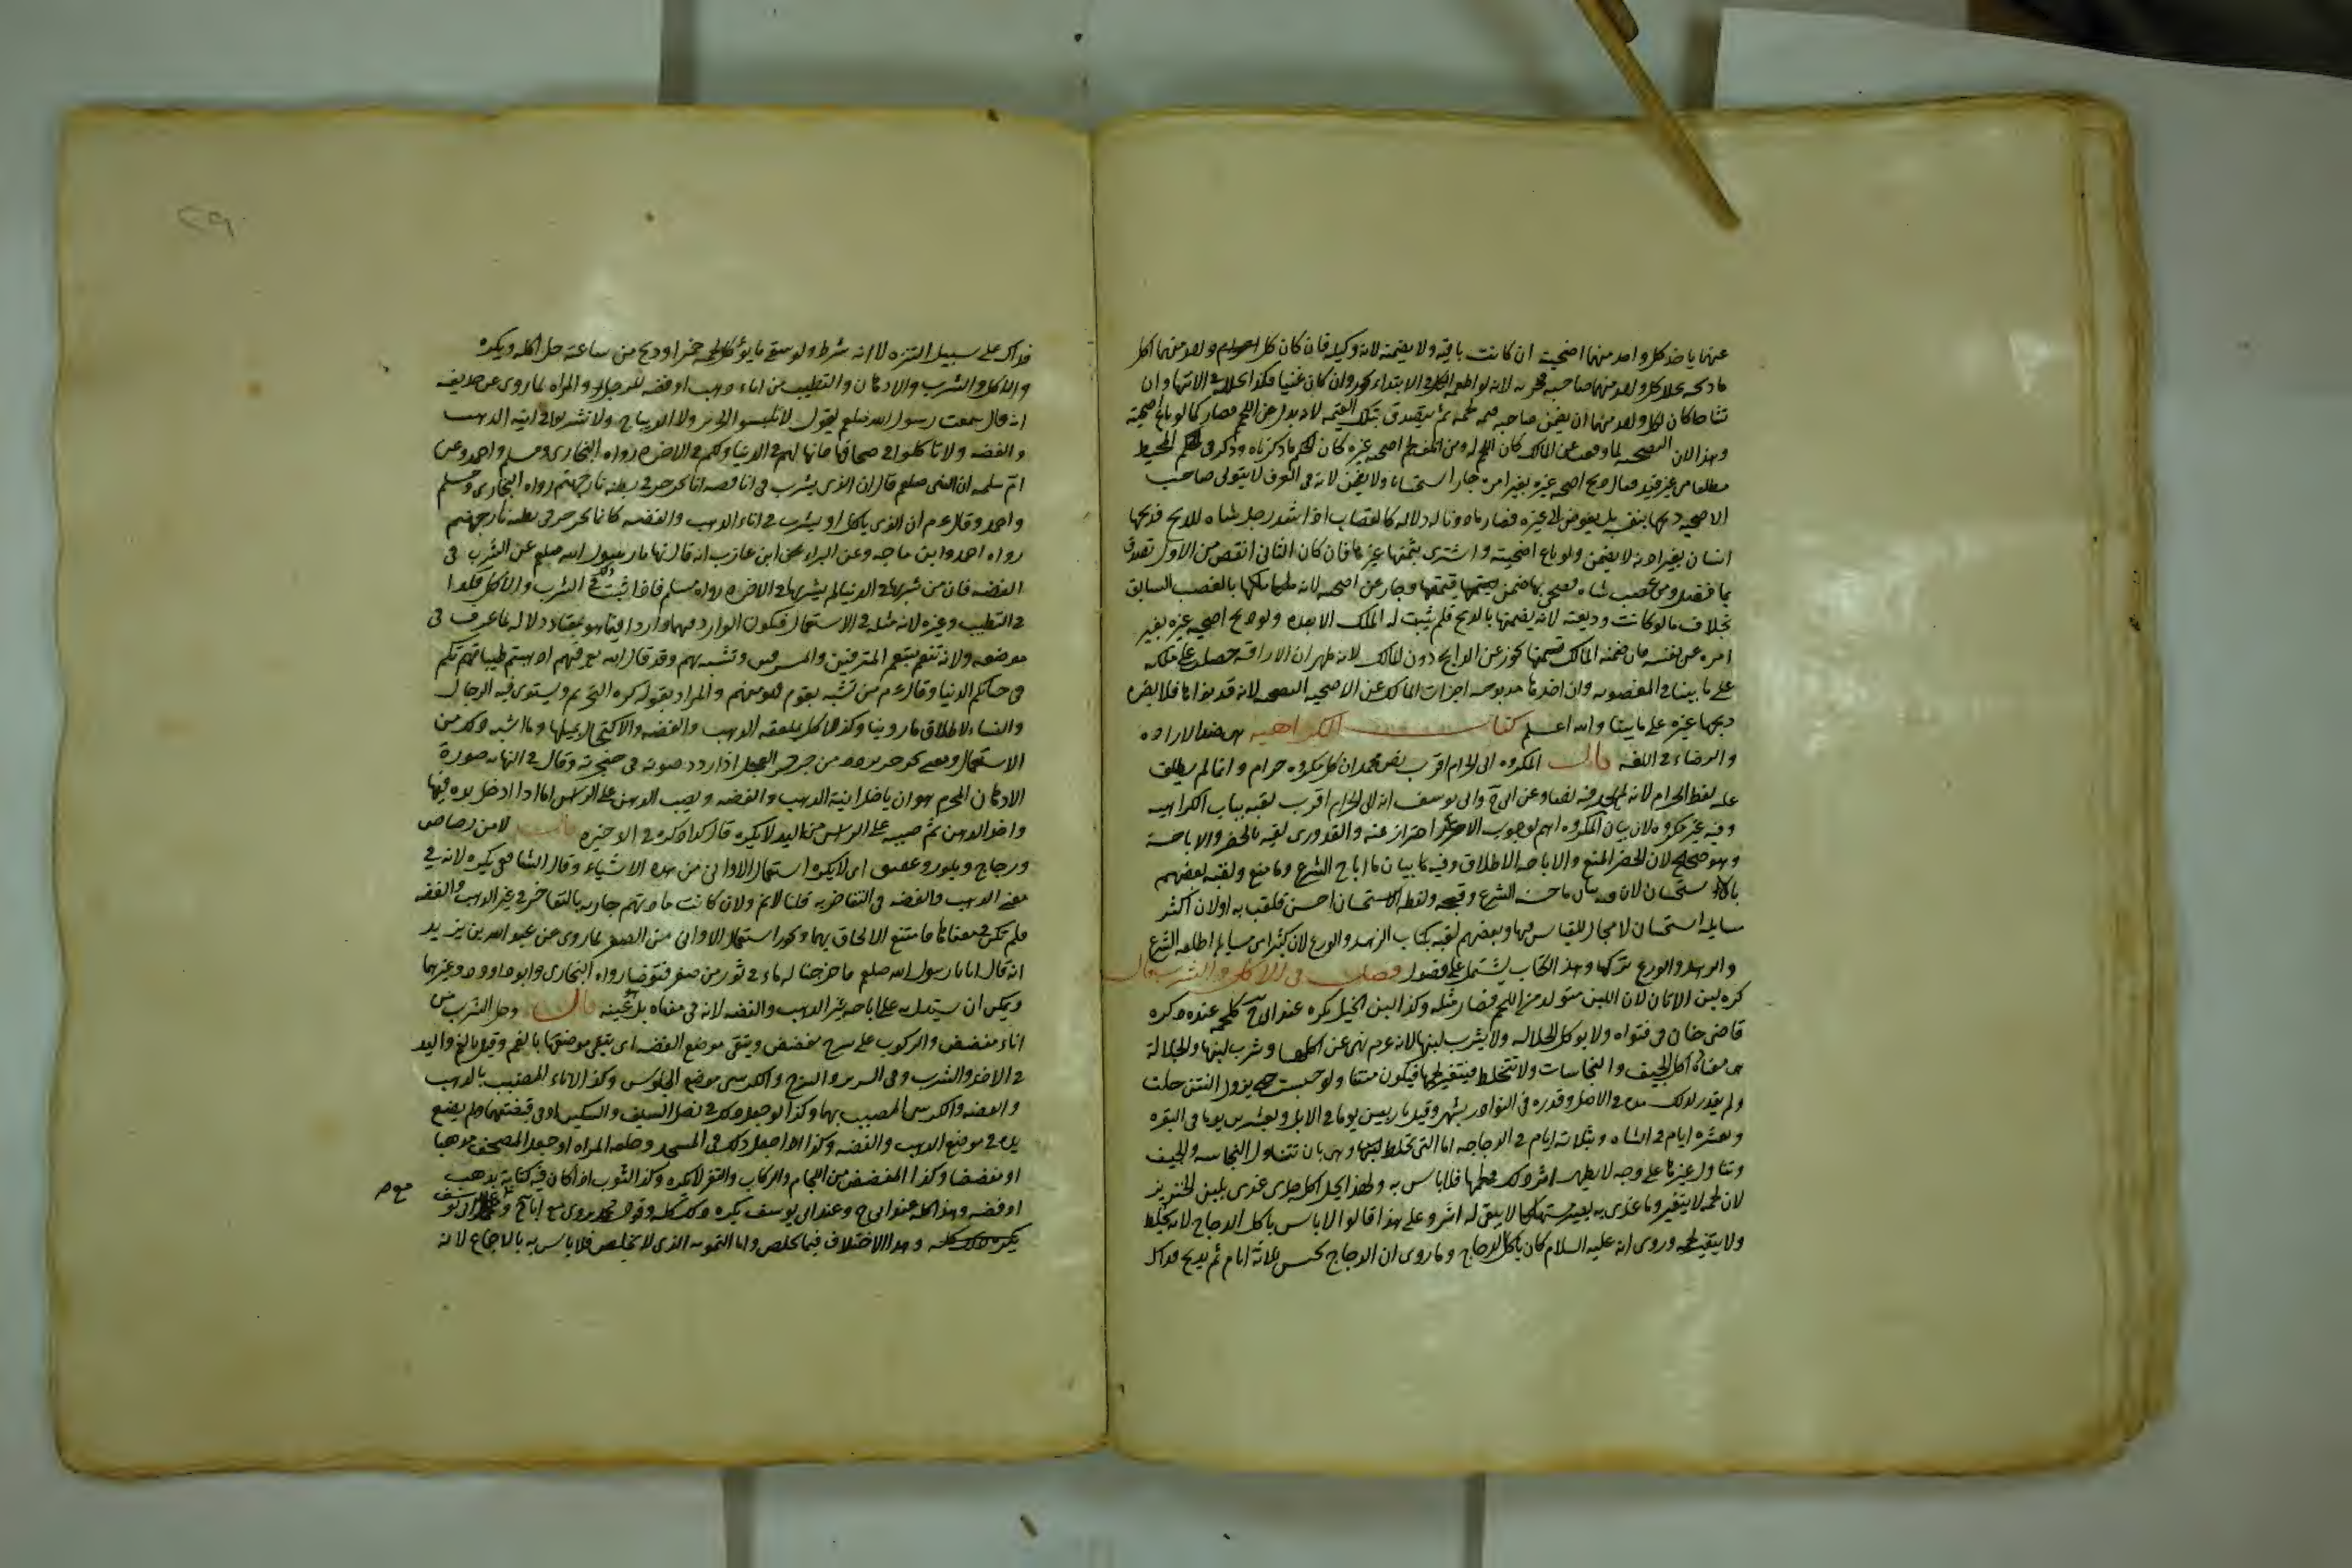 عنهما ياخذ كل واحد منهما اضحيته ان كانت باقية ولا يضمنه لانه وكيله فان كان كل واحد منهما اكل
ما ذبحه يحلل كل واحد منهما صاحبه فيجزيه لانه لو اطعمه الكل في الابتداء يجوز وان كان غنيا فكذا يحلله في الانتهاء وان
تشاحا كان لكل واحد منهما ان يضمن صاحبه قيمة لحمه ثم يتصدق بتلك القيمة لانه بدل عن اللحم فصار كما لو باع اضحيته
وهذا لان التضحية لما وقعت عن المالك كان اللحم له ومن اتلف لحم اضحية غيره كان الحكم ما ذكرناه وذكر في المحيط
مطلقا من غير قيد فقال ذبح اضحية غيره بغير امره جاز استحسانا ولا يضمن لانه في العرف لا يتولى صاحب
الاضحية ذبحها بنفسه بل يفوض الى غيره فصار ماذونا له دلالة كالقصاب اذا شد رجل شاة للذبح فذبحها
انسان بغير اذنه لا يضمن ولو باع اضحيته واشترى بثمنها غيرها فان كان الثاني انقص من الاول تصدق
بما فضل ومن غصب شاة فضحى بها ضمن قيمتها وجاز عن اضحيته لانه ملكها بالغصب السابق
بخلاف ما لو كانت وديعة لانه يضمنها بالذبح فلم يثبت له الملك الا بعده ولو ذبح اضحية غيره بغير
امره عن نفسه فان ضمنه المالك قيمتها يجوز عن الذابح دون المالك لانه ظهر ان الاراقة حصلت على ملكه
على ما بينا في المغصوبة وان اخذها مذبوحة اجزات المالك عن الاضحية لانه قد نواها فلا يضره
ذبحها غيره على ما بينا والله اعلم كتاب الكراهية هي ضد الارادة
والرضاء في اللغة قال المكروه الى الحرام اقرب نص محمد ان كل مكروه حرام وانما لم يطلق
عليه لفظ الحرام لانه لم يجد فيه نصا وعن ابي ح وابي يوسف انه الى الحرام اقرب لقبه بباب الكراهية
وفيه غير مكروه لان بيان المكروه اهم لوجوب الاحتراز عنه والقدوري لقبه بالحظر والاباحة
وهو صحيح لان الحظر المنع والاباحة الاطلاق وفيه بيان ما اباح الشرع وما منع ولقبه بعضهم
بالاستحسان لان فيه بيان ما حسنه الشرع وقبحه ولفظ الاستحسان احسن فلقب به او لان اكثر
مسايله استحسان لا مجال للقياس فيها وبعضهم لقبه بكتاب الزهد والورع لان كثيرا من مسايله اطلقه الشرع
والزهد والورع تركها وهذا الكتاب يشتمل على فصول فصل في الاكل والشرب قال
كره لبن الاتان لان اللبن متولد من اللحم فصار مثله وكذا لبن الخيل يكره عند ابي ح كلحمه عنده ذكره
قاضي خان في فتواه ولا يوكل الجلالة ولا يشرب لبنها لانه ع م نهى عن اكلها وشرب لبنها والجلالة
هي معتادة اكل الجيف والنجاسات ولا تخلط فيتغير لحمها فيكون منتنا ولو حبست حتى يزول النتن حلت
ولم يقدر لذلك مدة في الاصل وقدره في النوادر بشهر وقيل باربعين يوما في الابل وبعشرين يوما في البقرة
وبعشرة ايام في الشاة وبثلاثة ايام في الدجاجة اما التي تخلط وهي بان تتناول النجاسة والجيف
وتناول غيرها على وجه لا يظهر اثر ذلك في لحمها فلا باس به ولهذا يحل اكل جدي غذي بلبن الخنزير
لان لحمه لا يتغير وما غذي به يصير مستهلكا لا يبقى له اثر وعلى هذا قالوا لا باس باكل الدجاج لانه يخلط
ولا يتغير لحمه وروي انه عليه السلام كان ياكل الدجاج وما روي ان الدجاج يحبس ثلاثة ايام ثم يذبح فذاك
٢٩
فذاك على سبيل التنزه لا انه شرط ولو سقي ما يؤكل لحمه خمرا وذبح من ساعته حل اكله ويكره
والاكل والشرب والادهان والتطيب من اناء ذهب او فضة للرجال والمراة لما روي عن حذيفة
انه قال سمعت رسول الله صلعم يقول لا تلبسوا الحرير ولا الديباج ولا تشربوا في انية الذهب
والفضة ولا تاكلوا في صحافها فانها لهم في الدنيا ولكم في الاخرة رواه البخاري ومسلم واحمد وعن
ام سلمة ان النبي صلعم قال ان الذي يشرب في اناء فضة انما يجرجر في بطنه نار جهنم رواه البخاري ومسلم
واحمد وقال ع م ان الذي ياكل او يشرب في اناء الذهب والفضة كانما يجرجر في بطنه نار جهنم
رواه احمد وابن ماجه وعن البراء بن عازب انه قال نهانا رسول الله صلعم عن الشرب في
الفضة فان من شربها في الدنيا لم يشربها في الاخرة رواه مسلم فاذا ثبت ذلك في الشرب والاكل فكذا
في التطيب وغيره لانه مثله في الاستعمال فيكون الوارد فيهما واردا فيما هو بمعناه دلالة لما عرف في
موضعه ولانه تنعم بتنعم المترفين والمسرفين وتشبه بهم وقد قال الله فيهم اذهبتم طيباتكم
في حياتكم الدنيا وقال ع م من تشبه بقوم فهو منهم والمراد بقوله كره التحريم ويستوي فيه الرجال
والنساء لاطلاق ما روينا وكذا الاكل بملعقة الذهب والفضة والاكتحال بميلها وما اشبه ذلك من
الاستعمال ومعنى يجرجر يردد من جرجر الفحل اذا ردد صوته في حنجرته وقال في النهاية صورة
الادهان المحرم هو ان ياخذ انية الذهب والفضة ويصب الدهن على الراس اما اذا ادخل يده فيها
واخذ الدهن ثم صبه على الراس من اليد لا يكره قال كذا ذكره في الذخيرة قال لا من رصاص
وزجاج وبلور وعقيق اي لا يكره استعمال الاواني من هذه الاشياء وقال الشافعي يكره لانه في
معنى الذهب والفضة في التفاخر به قلنا لا نم ولان كانت عادتهم جارية بالتفاخر في غير الذهب والفضة
فلم تكن في معناها فامتنع الالحاق بهما ويجوز استعمال الاواني من الصفر لما روي عن عبد الله بن يزيد
انه قال اتانا رسول الله صلعم فاخرجنا له ماء في تور من صفر فتوضا رواه البخاري وابو داوود وغيرهما
ويمكن ان يستدل به على اباحة غير الذهب والفضة لانه في معناه بل عينه قال وحل الشرب من
اناء مفضض والركوب على سرج مفضض ويتقي موضع الفضة اي يتقي موضعها بالفم وقيل بالفم واليد
في الاخذ والشرب وفي السرير والسرج والكرسي موضع الجلوس وكذا الاناء المضبب بالذهب
والفضة والكرسي المضبب بهما وكذا لو جعل ذلك في نصل السيف والسكين او في قبضتهما ولم يضع
يده في موضع الذهب والفضة وكذا اذا جعل ذلك في المسجد وحلقة المراة او جعل المصحف مذهبا
او مفضضا وكذا المفضض من اللجام والركاب والثفر لا يكره وكذا الثوب اذا كان فيه كتابة بذهب
او فضة وهذا كله عند ابي ح وعند ابي يوسف يكره ذلك كله وقول محمد يروى مع ابي ح ومع ابي يوسف
يكره ذلك كله وهذا الاختلاف فيما يخلص واما التمويه الذي لا يخلص فلا باس به بالاجماع لانه